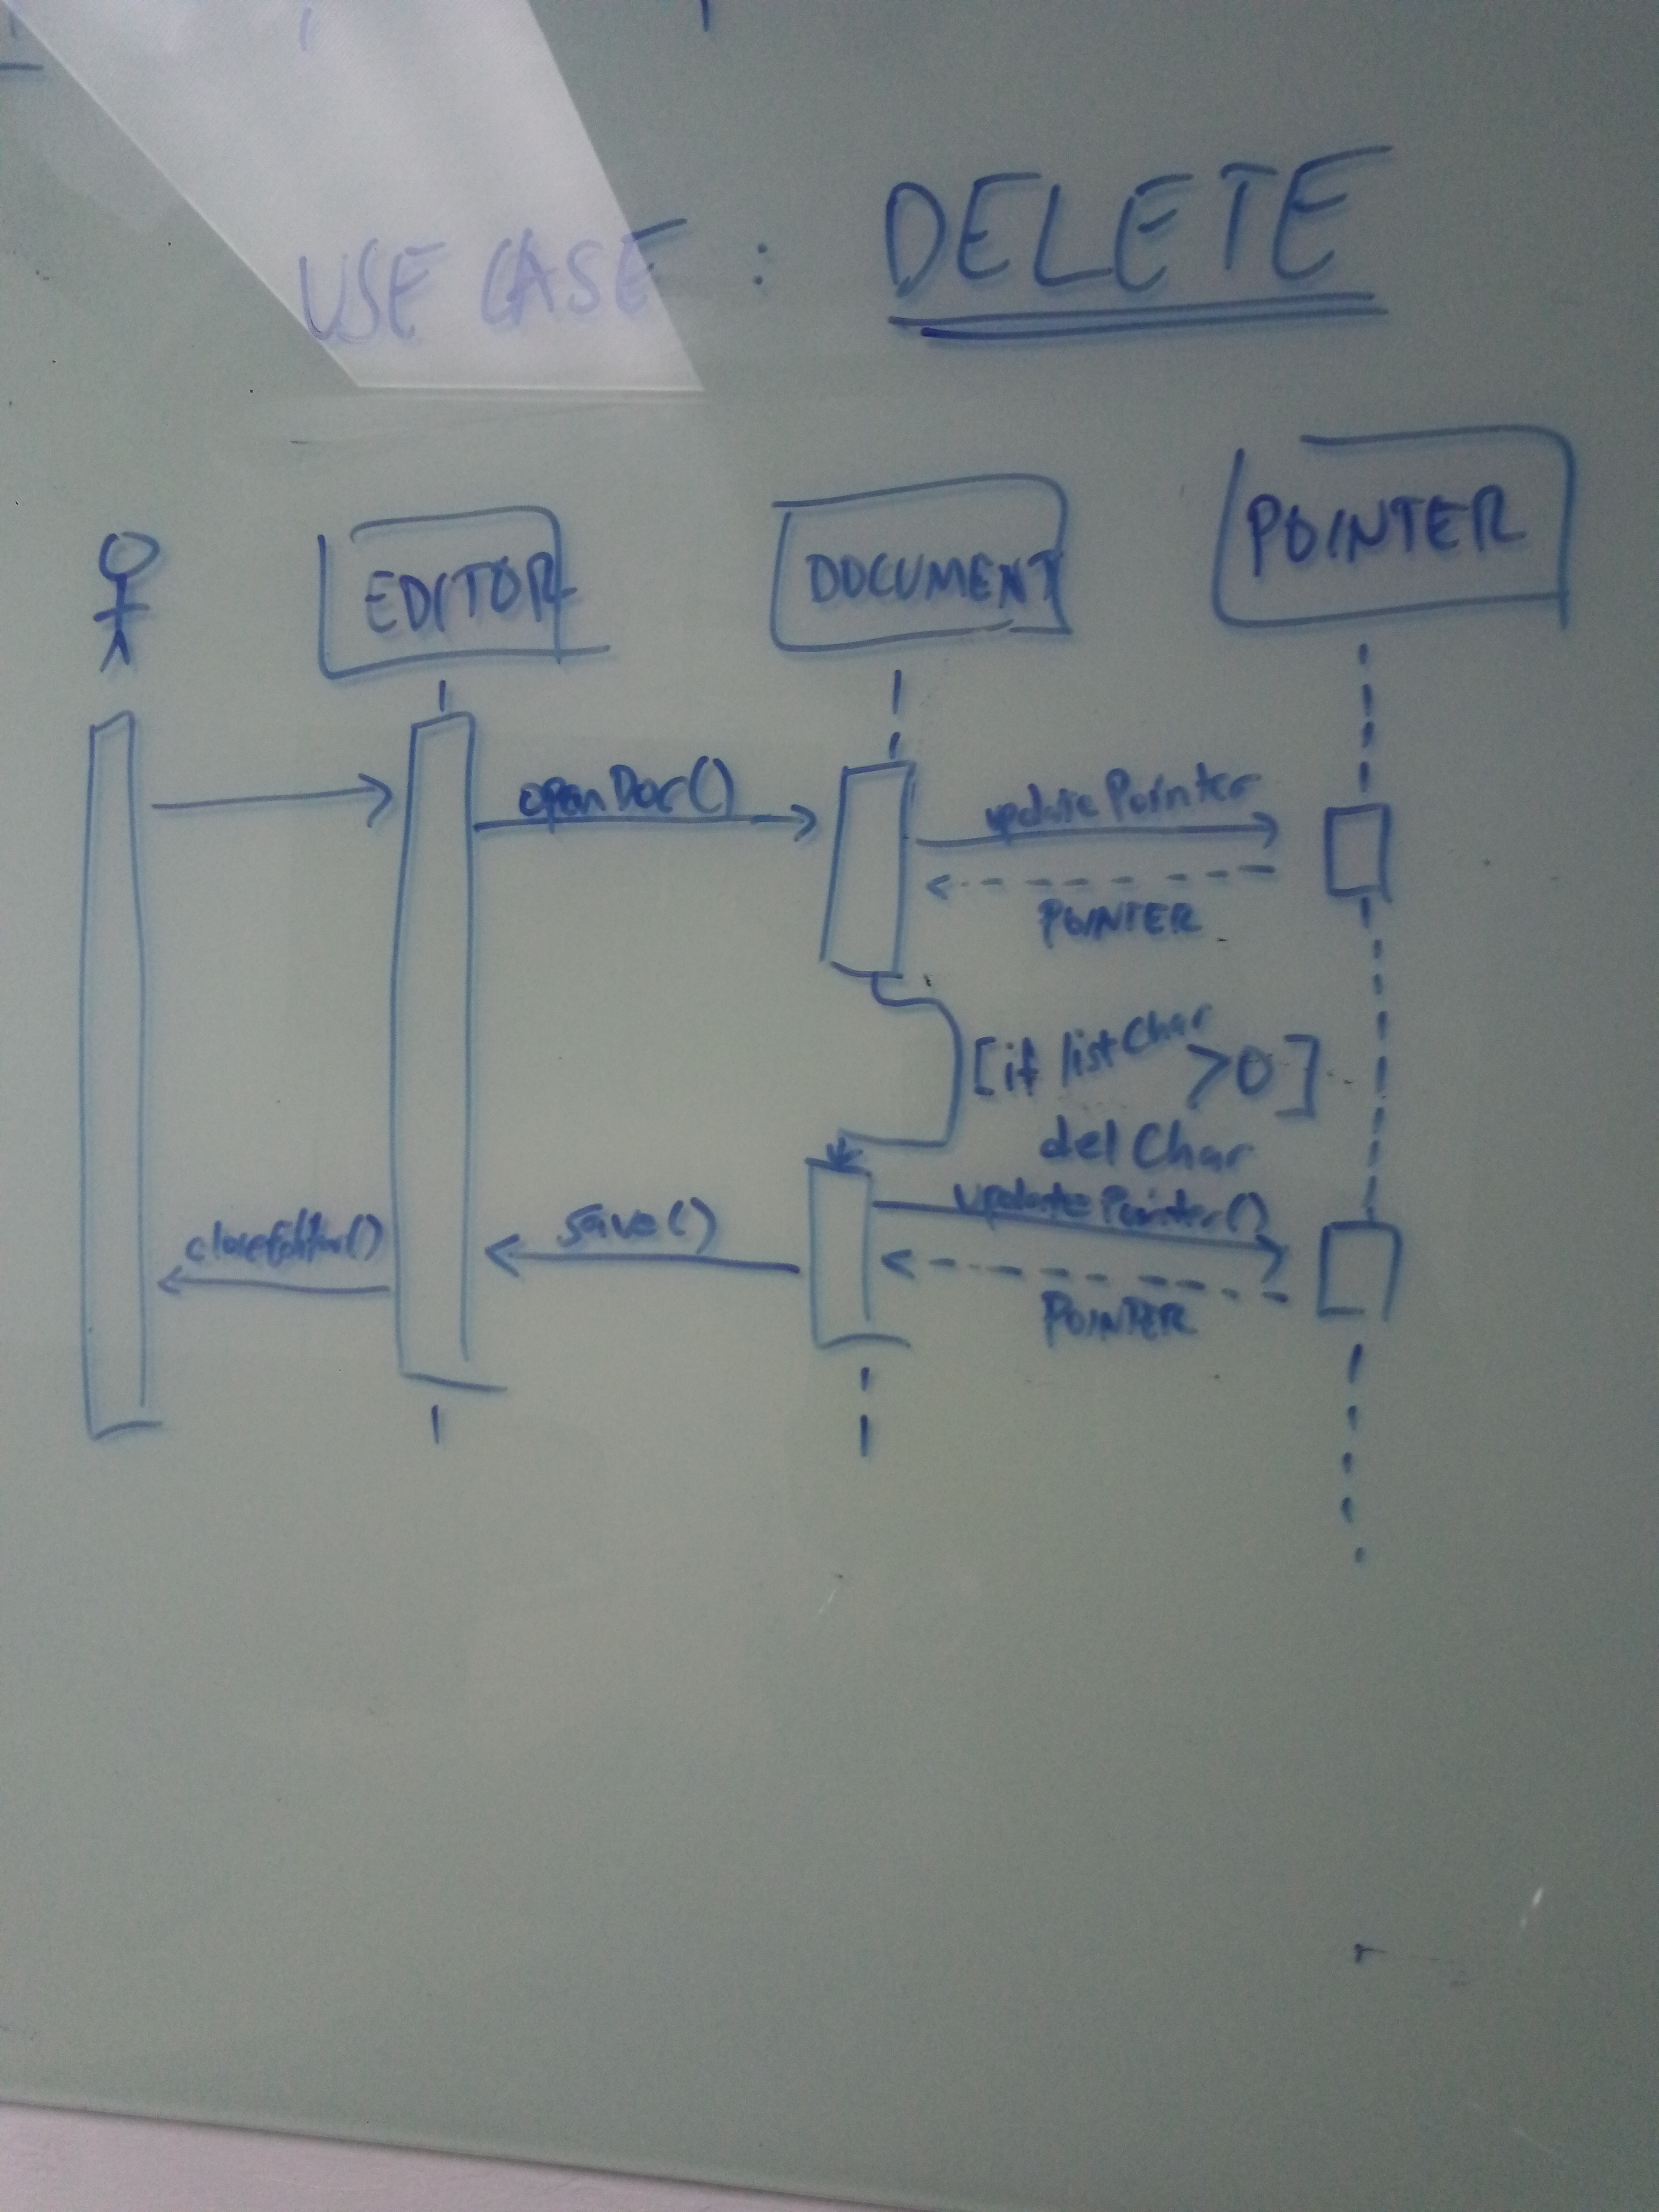 USE CASE : DELETE
EDITOR
DOCUMENT
POINTER
openDoc()
updatePointer
POINTER
[if listChar >0]
delChar
updatePointer()
save()
closeEditor()
POINTER